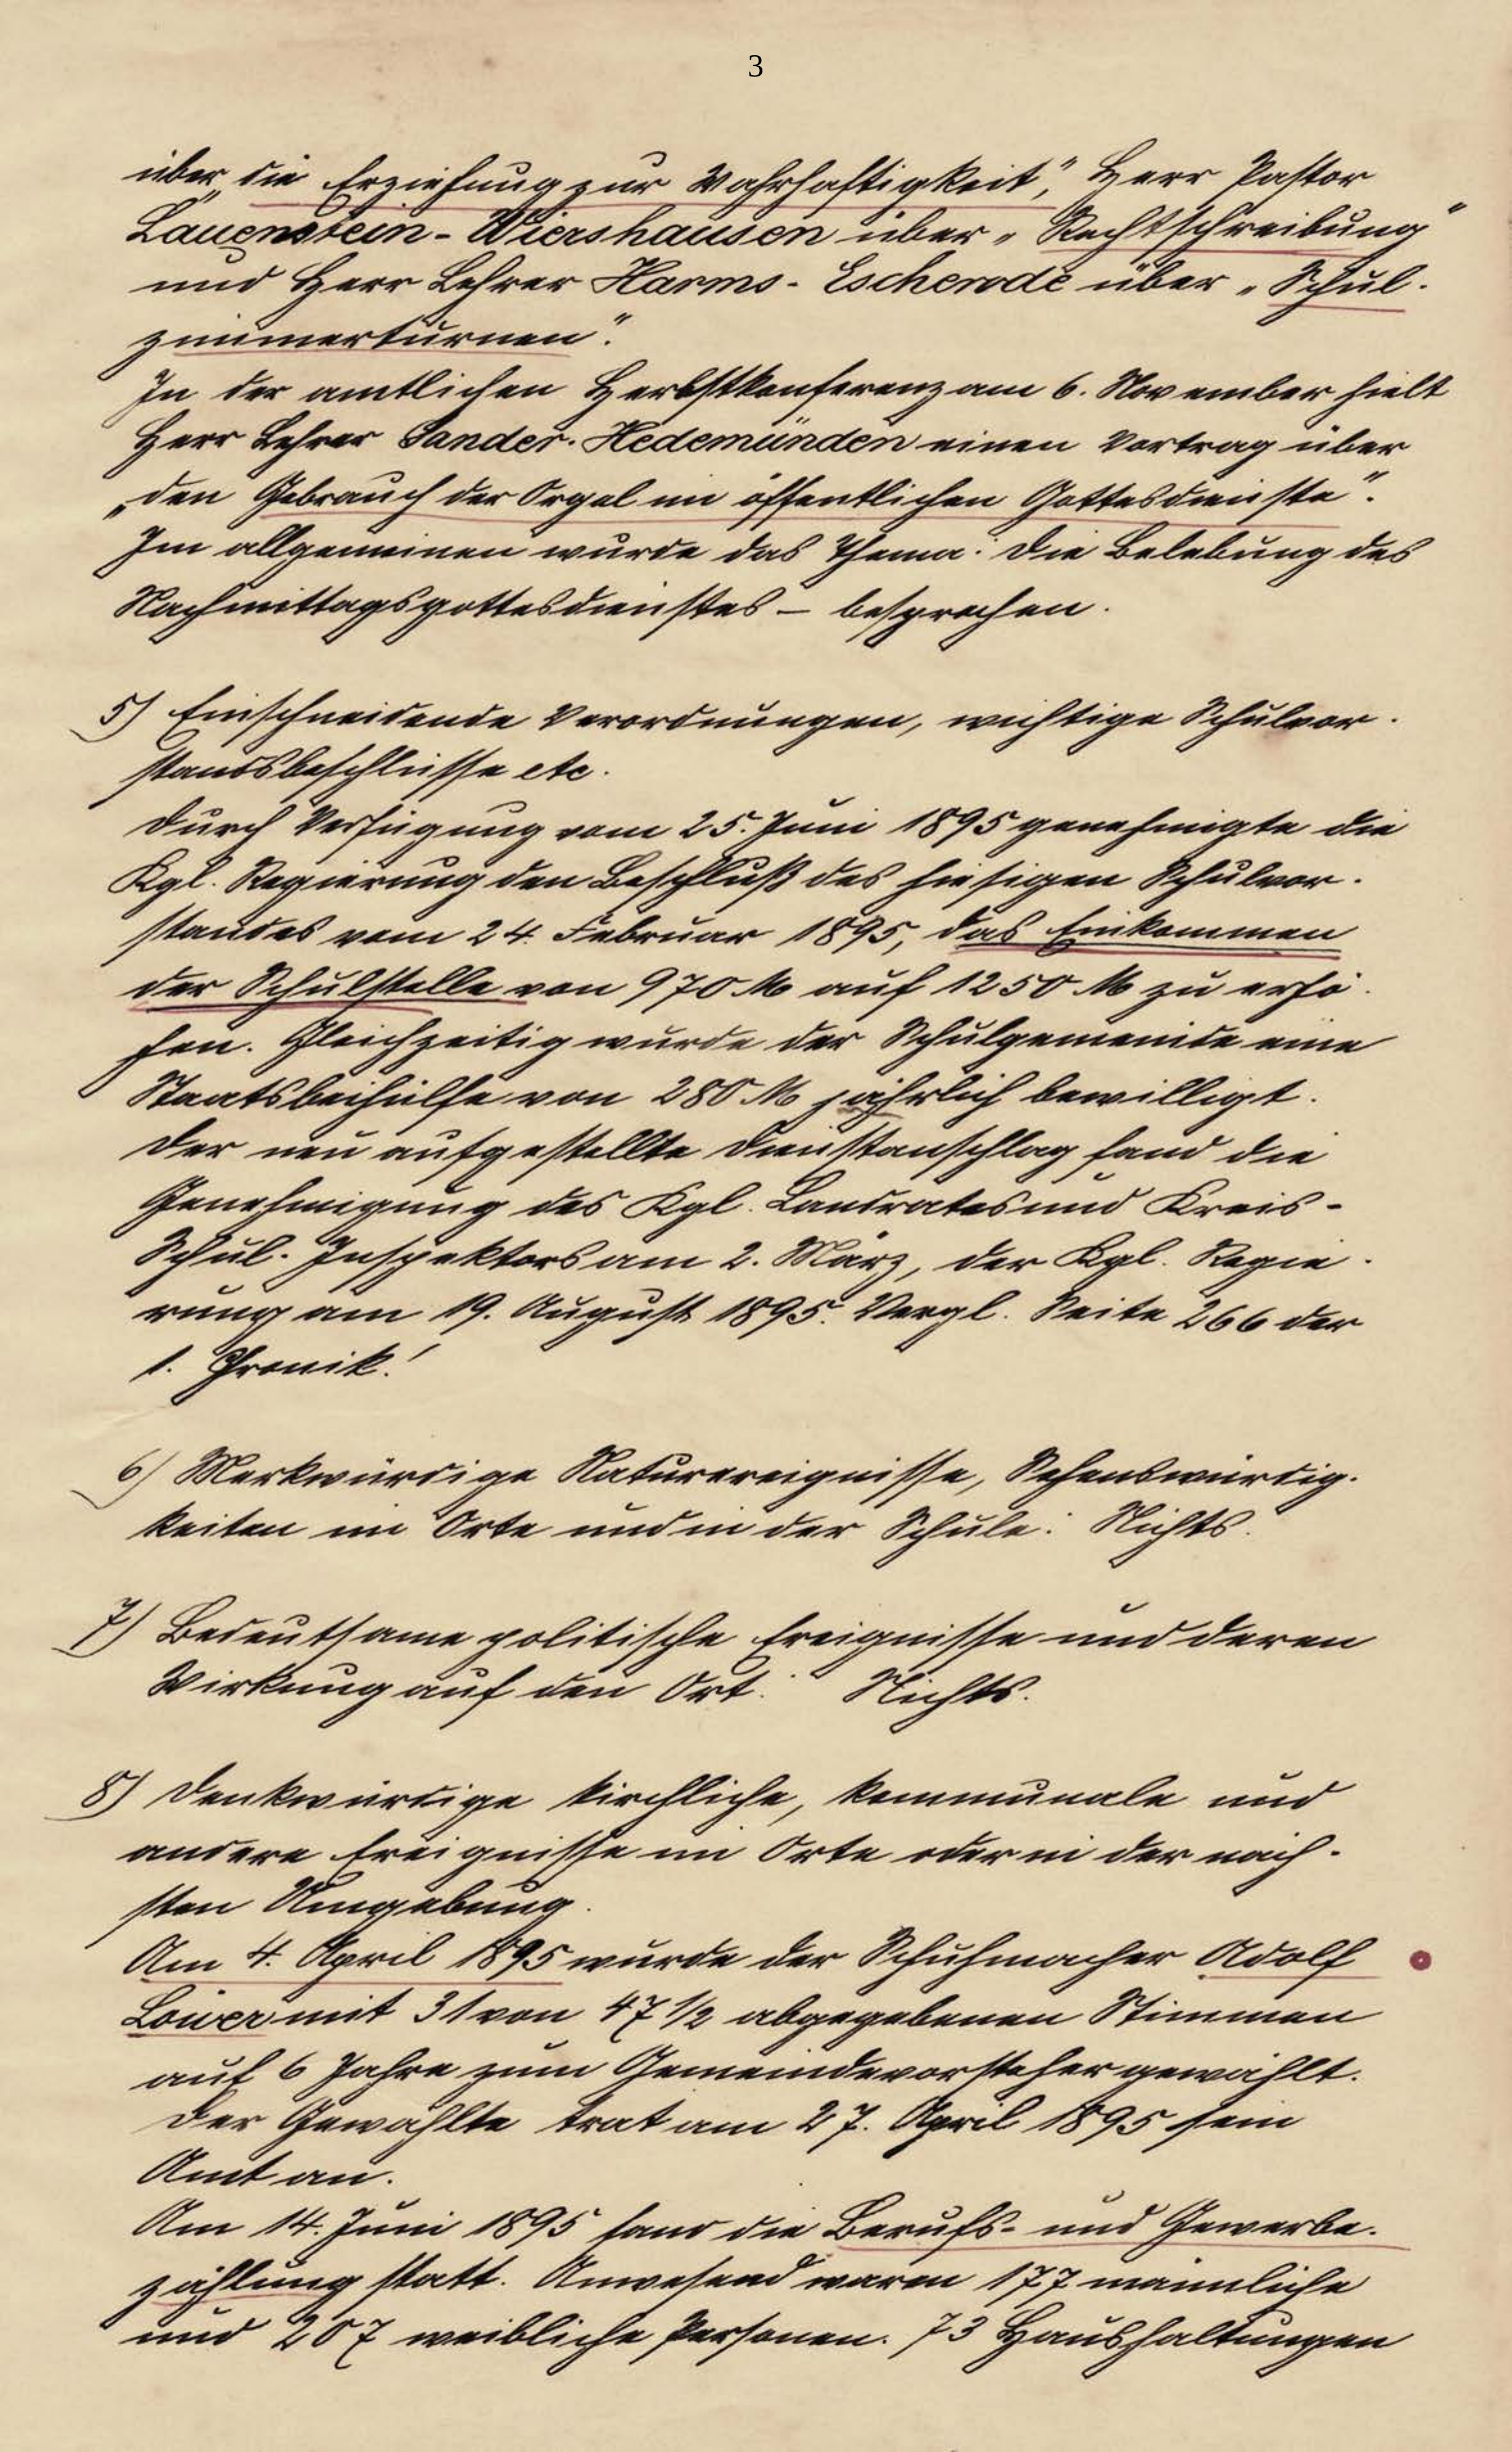 3
über „die Erziehung zur Wahrhaftigkeit“, Herr Pastor
Lauenstein-Wiershausen über „Rechtschreibung“
und Herr Lehrer Harms-Escherode über „Schul-
zimmerturnen“.
In der amtlichen Herbstkonferenz am 6. November hielt
Herr Lehrer Sander-Hedemünden einen Vortrag über
„den Gebrauch der Orgel im öffentlichen Gottesdienste“.
Im allgemeinen wurde das Thema: Die Belebung des
Nachmittagsgottesdienstes – besprochen.
5) Einschneidende Verordnungen, wichtige Schulvor-
standsbeschlüsse etc.
Durch Verfügung vom 25. Juni 1895 genehmigte die
Kgl. Regierung den Beschluß des hiesigen Schulvor-
standes vom 24. Februar 1895, das Einkommen
der Schulstelle von 970 M auf 1250 M zu erhö-
hen. Gleichzeitig wurde der Schulgemeinde eine
Staatsbeihülfe von 280 M jährlich bewilligt.
Der neu aufgestellte Dienstanschlag fand die
Genehmigung des Kgl. Landrates und Kreis-
Schul-Inspektors am 2. März, der Kgl. Regie-
rung am 19. August 1895. Vergl. Seite 266 der
1. Chronik!
6) Merkwürdige Naturereignisse, Sehenswürdig-
keiten im Orte und in der Schule: Nichts.
7) Bedeutsame politische Ereignisse und deren
Wirkung auf den Ort: Nichts.
8) Denkwürdige kirchliche, kommunale und
andere Ereignisse im Orte oder in der näch-
sten Umgebung.
Am 4. April 1895 wurde der Schuhmacher Adolf
Löwer mit 31 von 47 1/2 abgegebenen Stimmen
auf 6 Jahre zum Gemeindevorsteher gewählt.
Der Gewählte trat am 27. April 1895 sein
Amt an.
Am 14. Juni 1895 fand die Berufs- und Gewerbe-
zählung statt. Anwesend waren 177 männliche
und 207 weibliche Personen. 73 Haushaltungen